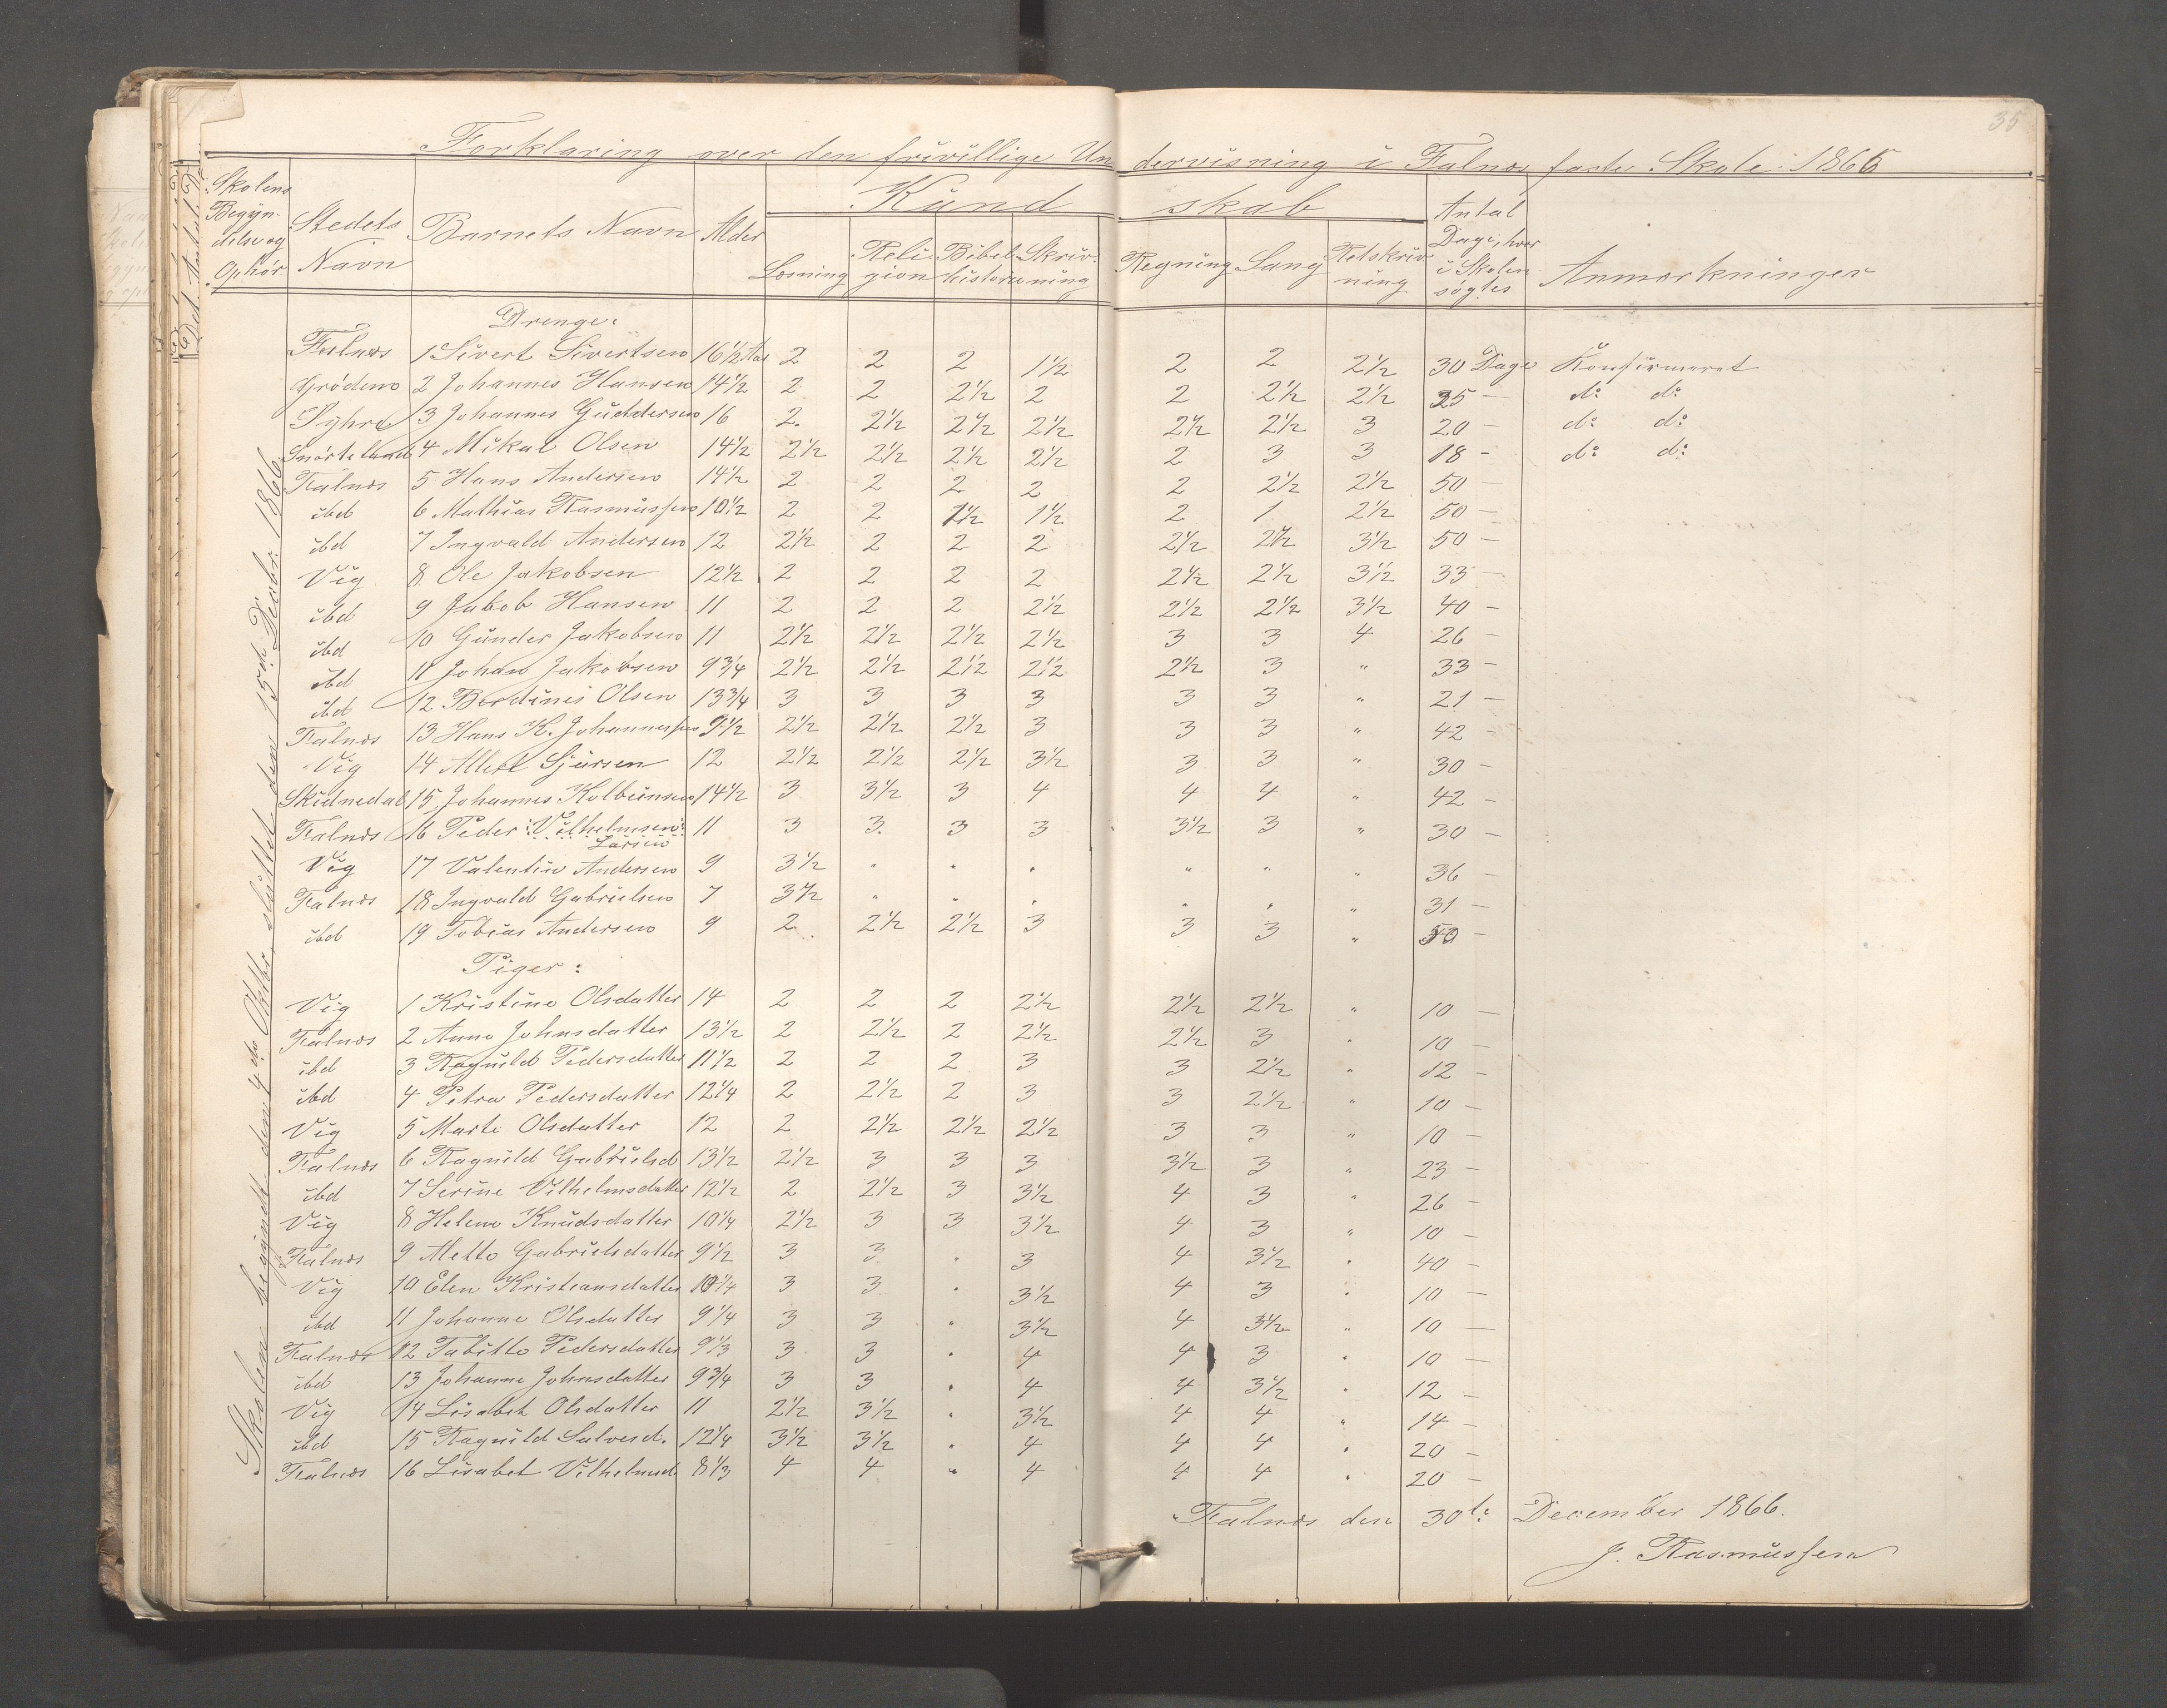 35
Forklaring over den frivillige Undervisning i Falnæs faste Skole 1866
Skolens Begyndelse og Ophör. Stedets Navn Barnets Navn Alder Kundskab Antal Dage, hvor i Skolen søgtes Anmærkninger
Læsning Religion Bibelhistorie Skrivning Regning Sang Retskrivning
Skolen begyndt den 4de Oktbr, sluttet den 15de Decbr: 1866.
Drenge:
Falnæs 1 Sivert Sivertsen 16 1/2 Aar 2 2 2 1 1/2 2 2 2 1/2 30 Dage Konfirmeret
Grödem 2 Johannes Hansen 14 1/2 2 2 2 1/2 2 2 2 1/2 2 1/2 35 — do do
3 Johannes Guddersen 16 2 2 1/2 2 1/2 2 1/2 2 1/2 2 1/2 3 20 — do do
Snörteland 4 Mikal Olsen 14 1/2 2 1/2 2 1/2 2 1/2 2 1/2 2 3 3 18 - do do
Falnæs 5 Hans Andersen 14 1/2 2 2 2 2 2 2 1/2 2 1/2 50 —
ibd 6 Mathias Rasmussen 10 1/2 2 2 1 1/2 1 1/2 2 1 2 1/2 50 —
ibd 7 Ingvald Andersen 12 2 1/2 2 2 2 2 1/2 2 1/2 3 1/2 50 —
Vig 8 Ole Jakobsen 12 1/2 2 2 2 2 2 1/2 2 1/2 3 1/2 33 —
ibd 9 Jakob Hansen 11 2 2 2 2 1/2 2 1/2 2 1/2 3 1/2 40 —
ibd 10 Gunder Jakobsen 11 2 1/2 2 1/2 2 1/2 2 1/2 3 3 4 26 —
ibd 11 Johan Jakobsen 9 3/4 2 1/2 2 1/2 2 1/2 2 1/2 2 1/2 3 " 33 —
ibd 12 Berdines Olsen 13 3/4 3 3 3 3 3 3 " 21 —
Falnæs 13 Hans K. Johannessen 9 1/2 2 1/2 2 1/2 2 1/2 3 3 3 " 42 -
Vig 14 Sjursen 12 2 1/2 2 1/2 2 1/2 3 1/2 3 3 " 30 —
Skidnedal 15 Johannes Kolbeinsen 14 1/2 3 3 1/2 3 4 4 4 " 42 -
Falnæs 16 Peder Vilhelmsen Larsen 11 3 3 3 3 3 1/2 3 " 30 —
Vig 17 Valentin Andersen 9 3 1/2 " " " " " " 36 -
Falnæs 18 Ingvald Gabrielsen 7 3 1/2 " " " " " " 31 -
ibd 19 Tobias Andersen 9 2 2 1/2 2 1/2 3 3 3 " 50 —
Piger:
Vig 1 Kristine Olsdatter 14 2 2 2 2 1/2 2 1/2 2 1/2 " 10 —
Falnæs 2 Anne Johnsdatter 13 1/2 2 2 1/2 2 2 1/2 2 1/2 3 " 10 —
ibd 3 Ragnild Pedersdatter 11 1/2 2 2 2 3 3 2 1/2 " 12 —
ibd 4 Petra Pedersdatter 12 1/4 2 2 1/2 2 3 3 2 1/2 " 10 —
Vig 5 Marte Olsdatter 12 2 2 1/2 2 1/2 2 1/2 3 3 " 10 —
Falnæs 6 Ragnild Gabrielsd 13 1/2 2 1/2 3 3 3 3 1/2 3 " 23 —
ibd 7 Serine Vilhelmsdatter 12 1/2 2 2 1/2 3 3 1/2 4 3 " 26 —
Vig 8 Helene Knudsdatter 10 1/4 2 1/2 3 3 3 1/2 4 3 " 10 —
Falnæs 9 Mette Gabrielsdatter 9 1/2 3 3 " 3 4 3 1/2 " 40 —
Vig 10 Elen Kristiansdatter 10 1/4 3 3 " 3 1/2 4 3 " 10 —
ibd 11 Johanne Olsdatter 9 1/4 3 3 " 3 1/2 4 3 1/2 " 10 —
Falnæs 12 Tabitte Pedersdatter 9 1/3 3 3 " 4 4 3 " 10 —
ibd 13 Johanne Johnsdatter 9 3/4 3 3 " 4 4 3 1/2 " 12 —
Vig 14 Lisabet Olsdatter 11 2 1/2 3 1/2 " 3 1/2 4 4 " 14 —
ibd 15 Ragnild Salvesd. 12 1/4 3 1/2 3 1/2 " 4 4 4 " 20 —
Falnæs 16 Lisabet Vilhelmsd 8 1/3 4 4 " 4 4 4 " 20 —
Falnæs den 30te December 1866.
J. Rasmussen